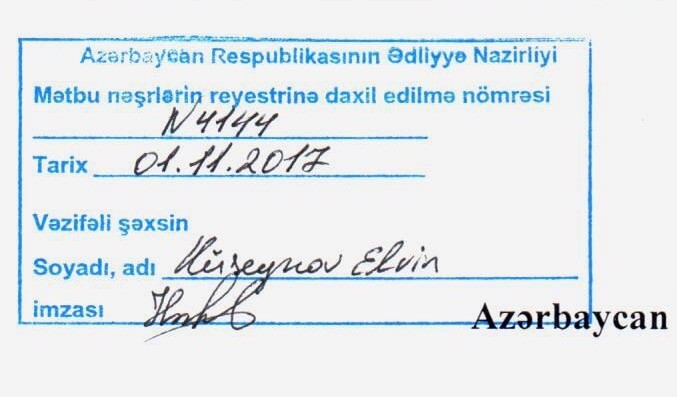 Azərbaycan Respublikasının Ədliyyə Nazirliyi
Mətbu nəşrlərin reyestrinə daxil edilmə nömrəsi
N 4144
Tarix 01.11.2017
Vəzifəli şəxsin
Soyadı, adı Hüseynov Elvin
imzası
Azərbaycan